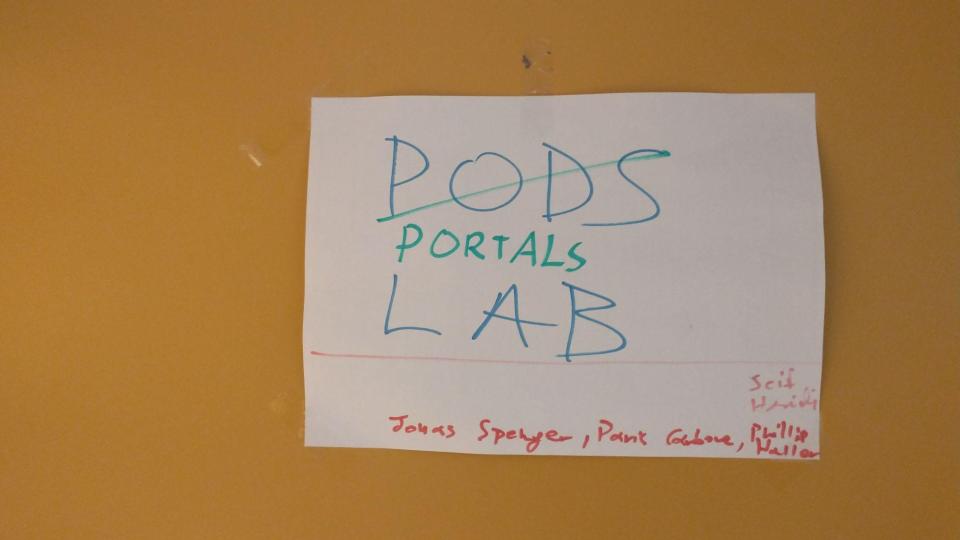 PODS
PORTALS
LAB
Seif
Haridi
Jonas Spenger, Paris Carbone, Philipp
Haller